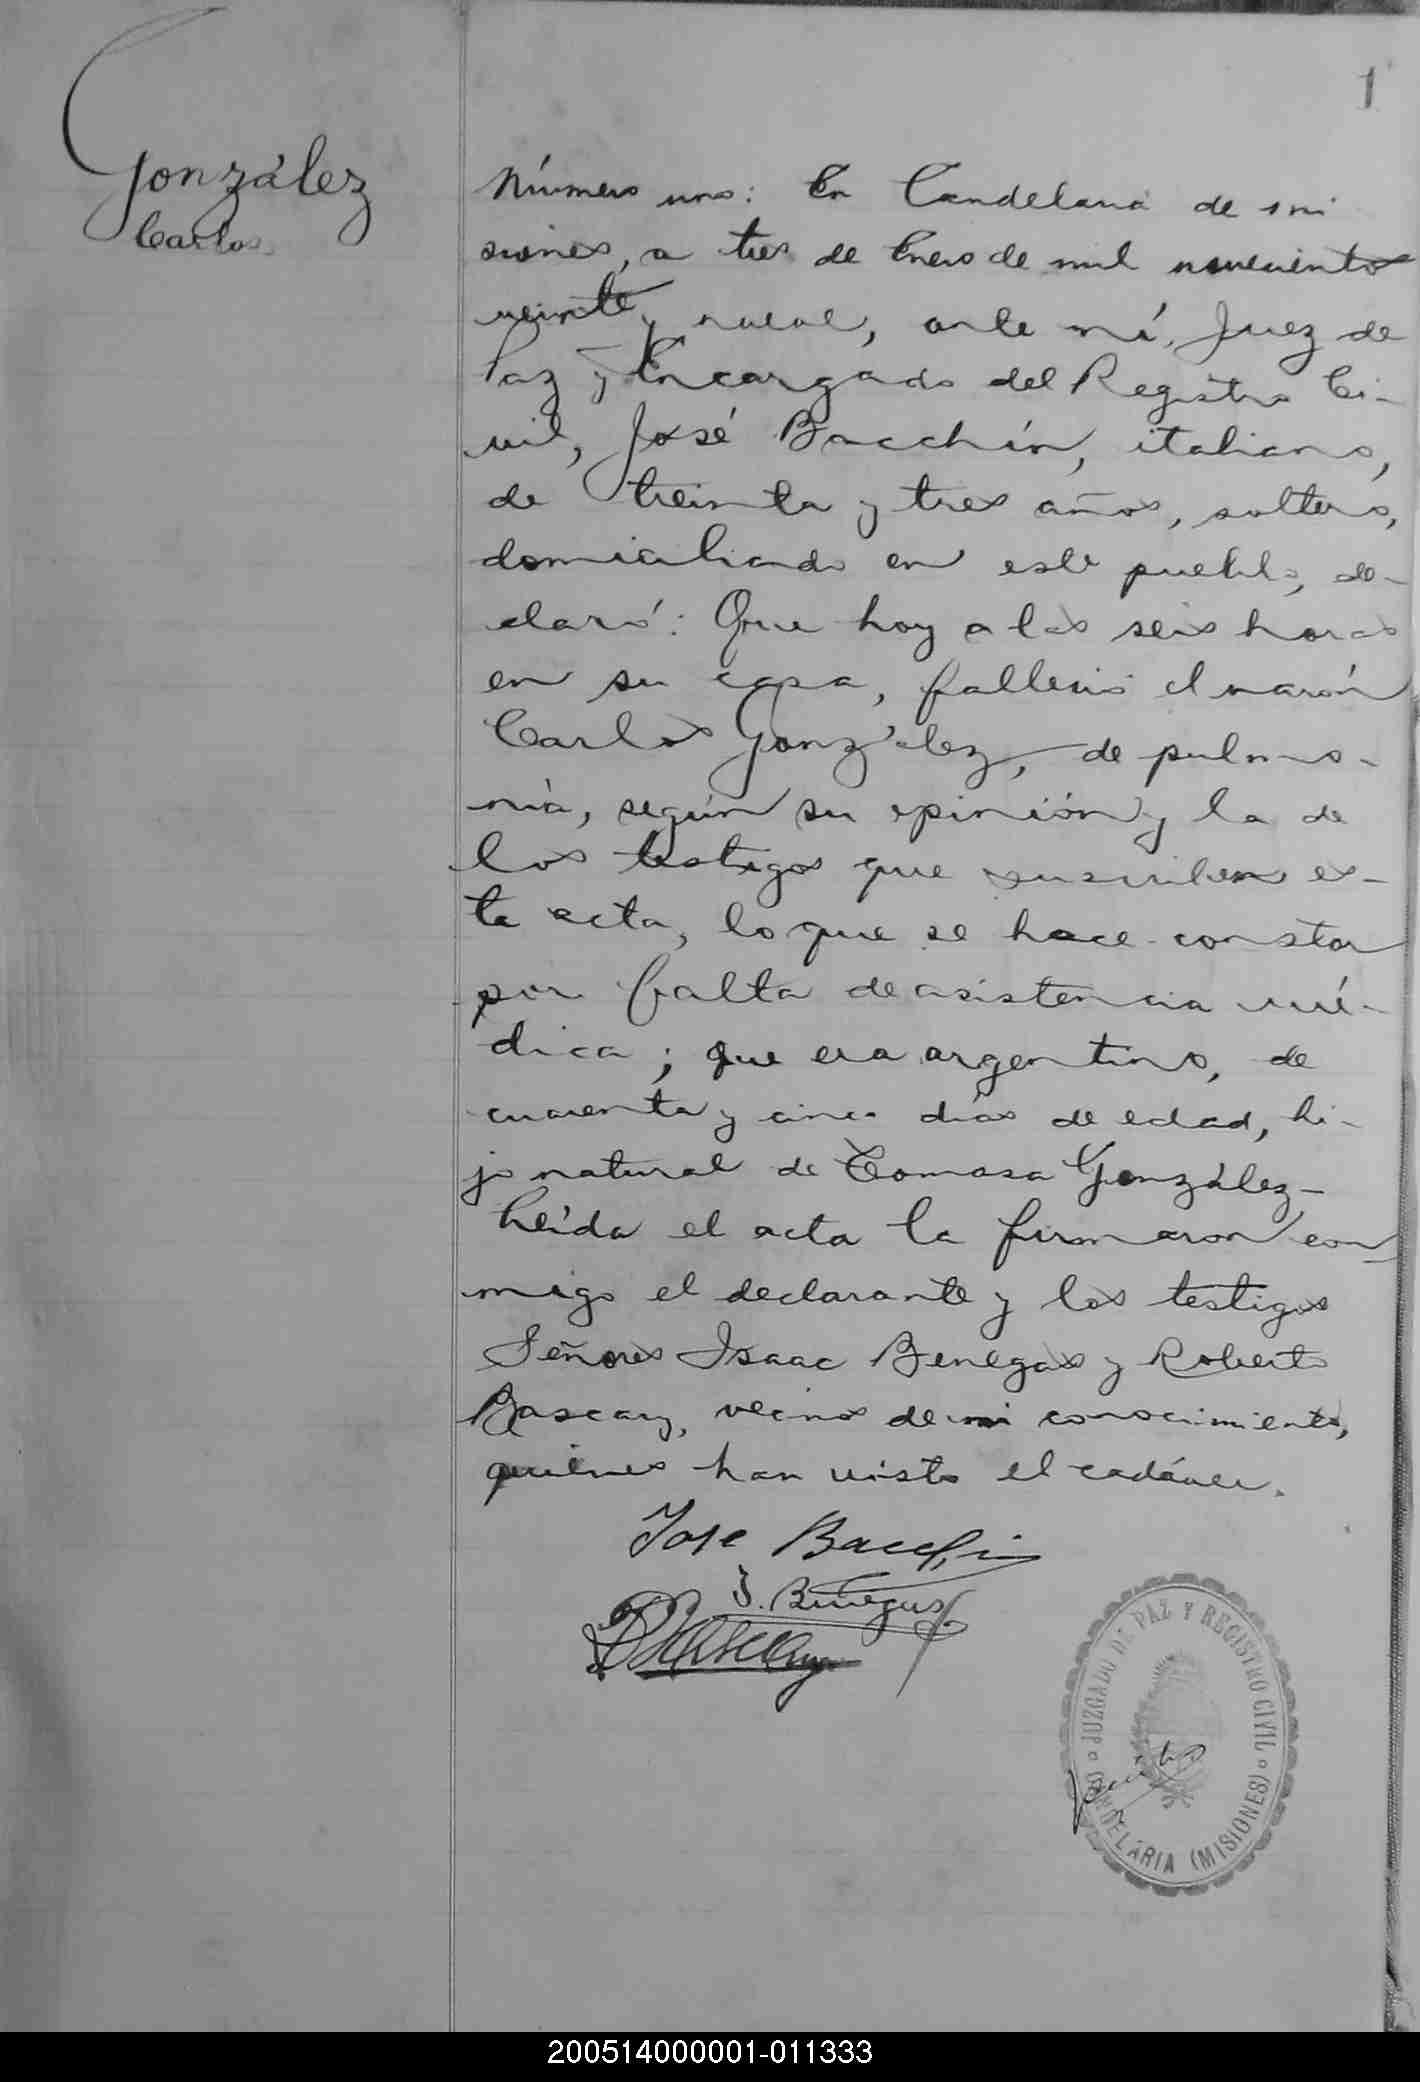 1
González
Carlos
Número uno: En Candelaria de Mi
siones, a tres de Enero de mil novecientos
veinte y nueve, ante mí, Juez de
Paz y Encargado del Registro Ci-
vil, José Bacchín, italiano,
de treinta y tres años, soltero,
domiciliado en este pueblo, de-
claró: Que hoy a las seis horas
en su casa, falleció el varón
Carlos González, de pulmo-
nía, según su opinión y la de
los testigos que suscriben es-
ta acta, lo que se hace constar
por falta de asistencia mé-
dica; que era argentino, de
cuarenta y cinco días de edad, hi-
jo natural de Tomasa González-
Leída el acta la firmaron con
migo el declarante y los testigos
Señores Isaac Benegas y Roberto
Bascary, vecinos de mi conocimiento,
quienes han visto el cadáver.
Jose Bacchin
I. Benegas
RBascary
JUZGADO DE PAZ Y REGISTRO CIVIL
CANDELARIA (MISIONES)
200514000001-011333